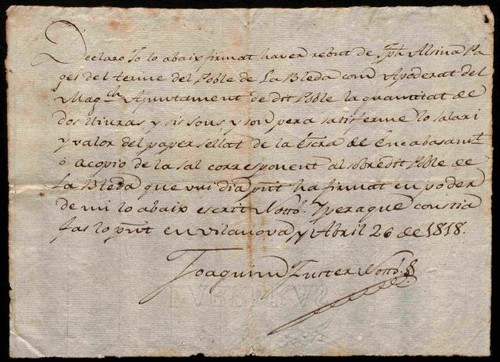 Declaro Jo lo abaix firmat haver rebut de Jph Alsina Pa-
ges del terme del Poble de La Bleda com Apoderat del
Magch Ajuntament de dit Poble la quantitat de
dos lliuras y sis sous y son pera satisferme lo salari
y valor del paper sellat de la Escra de Encabasamt
ò acopio de la sal corresponent al sobredit Poble de
La Bleda que vui dia pnt ha firmat en poder
de mi lo abaix escrit Notto. Y peraque constia
fas lo pnt en Vilanova y Abril 26 de 1818.
Joaquim Fuster Notto.